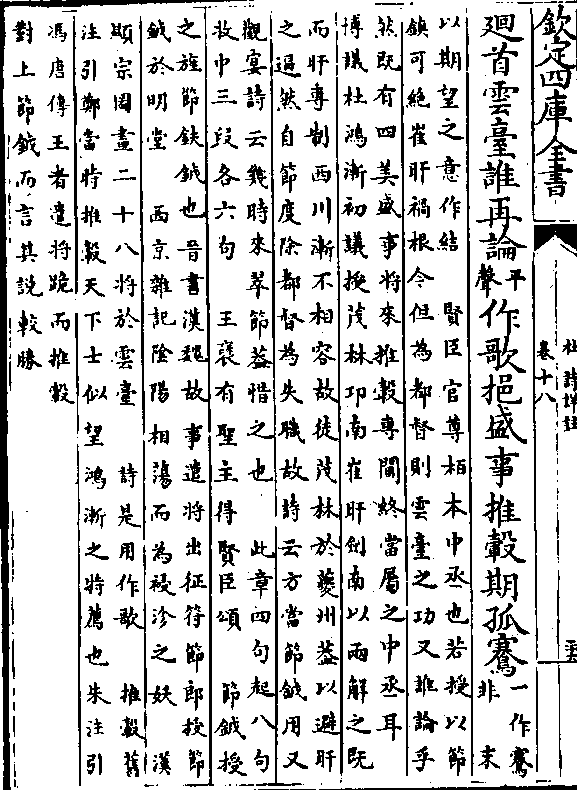 欽定四庫全書
杜詩詳註
卷十八
廻首雲臺誰再論平聲作歌挹盛事推轂期孤騫一作騫非 末
以期望之意作結 賢臣官尊栢本中丞也若授以節
鎮可絶崔旰禍根今但為都督則雲臺之功又誰論乎
然既有四美盛事將來推轂專閫終當屬之中丞耳
博議杜鴻漸初議授茂林邛南崔旰劍南以兩解之既
而旰專制西川漸不相容故徒茂林於夔州葢以避旰
之逼然自節度除都督為失職故詩云方當節鉞用又
觀宴詩云幾時來翠節葢惜之也 此章四句起八句
收中三段各六句 王襃有聖主得賢臣頌 節鉞授
之旌節鈇鉞也晉書漢魏故事遣將出征符節郎授節
鉞於明堂 西京雜記陰陽相蕩而為祲沴之妖 漢
顯宗圖畫二十八將於雲臺 詩是用作歌 推轂舊
注引鄭當時推轂天下士似望鴻漸之特薦也朱注引
馮唐傳王者遣將跪而推轂
對上節鉞而言其説較勝